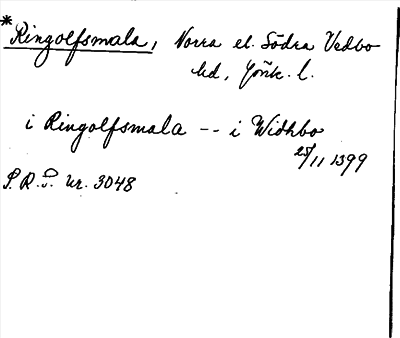 * Ringolfsmala, Norra el. Södra Vedbo
hd, Jönk. l.
i Ringolfsmala -- i Widhbo
25/11 1399
S.R.P. nr. 3048